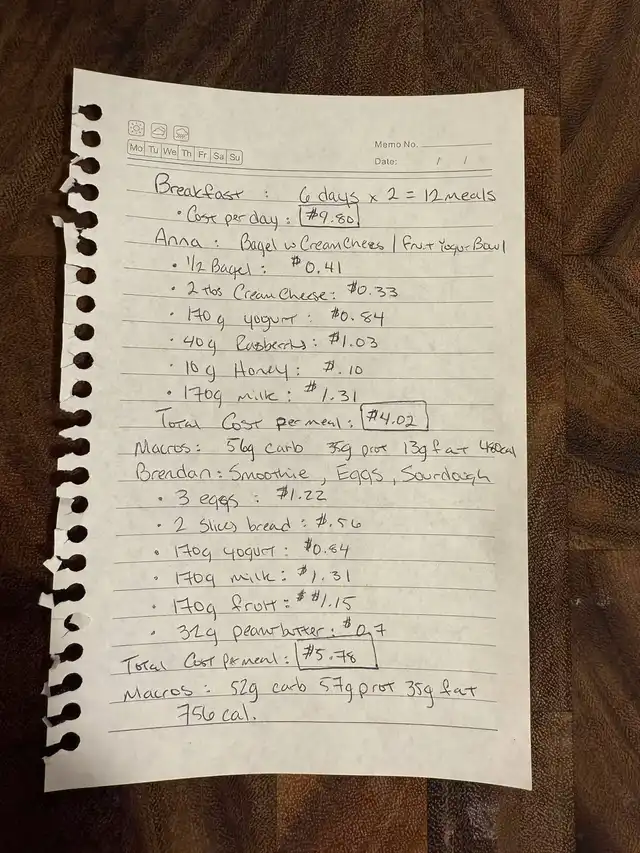 Memo No.
Mo Tu We Th Fr Sa Su
Date: / /
Breakfast : 6 days x 2 = 12 meals
• Cost per day : $9.80
Anna : Bagel w Cream Chees | Fruit Yogur Bowl
• 1/2 Bagel : $0.41
• 2 tbs Cream Cheese : $0.33
• 170 g yogurt : $0.84
• 40g Rasberris : $1.03
• 10 g Honey : $.10
• 170g milk : $1.31
Total Cost per meal : $4.02
Macros : 56g carb 35g prot 13g fat 480cal
Brendan : Smoothie, Eggs, Sourdough
• 3 eggs : $1.22
• 2 Slices bread : $.56
• 170g yogurt : $0.84
• 170g milk : $1.31
• 170g fruit : $ $1.15
• 32g peanut butter : $0.7
Total Cost per meal : $5.78
Macros : 52g carb 57g prot 35g fat
756 cal.